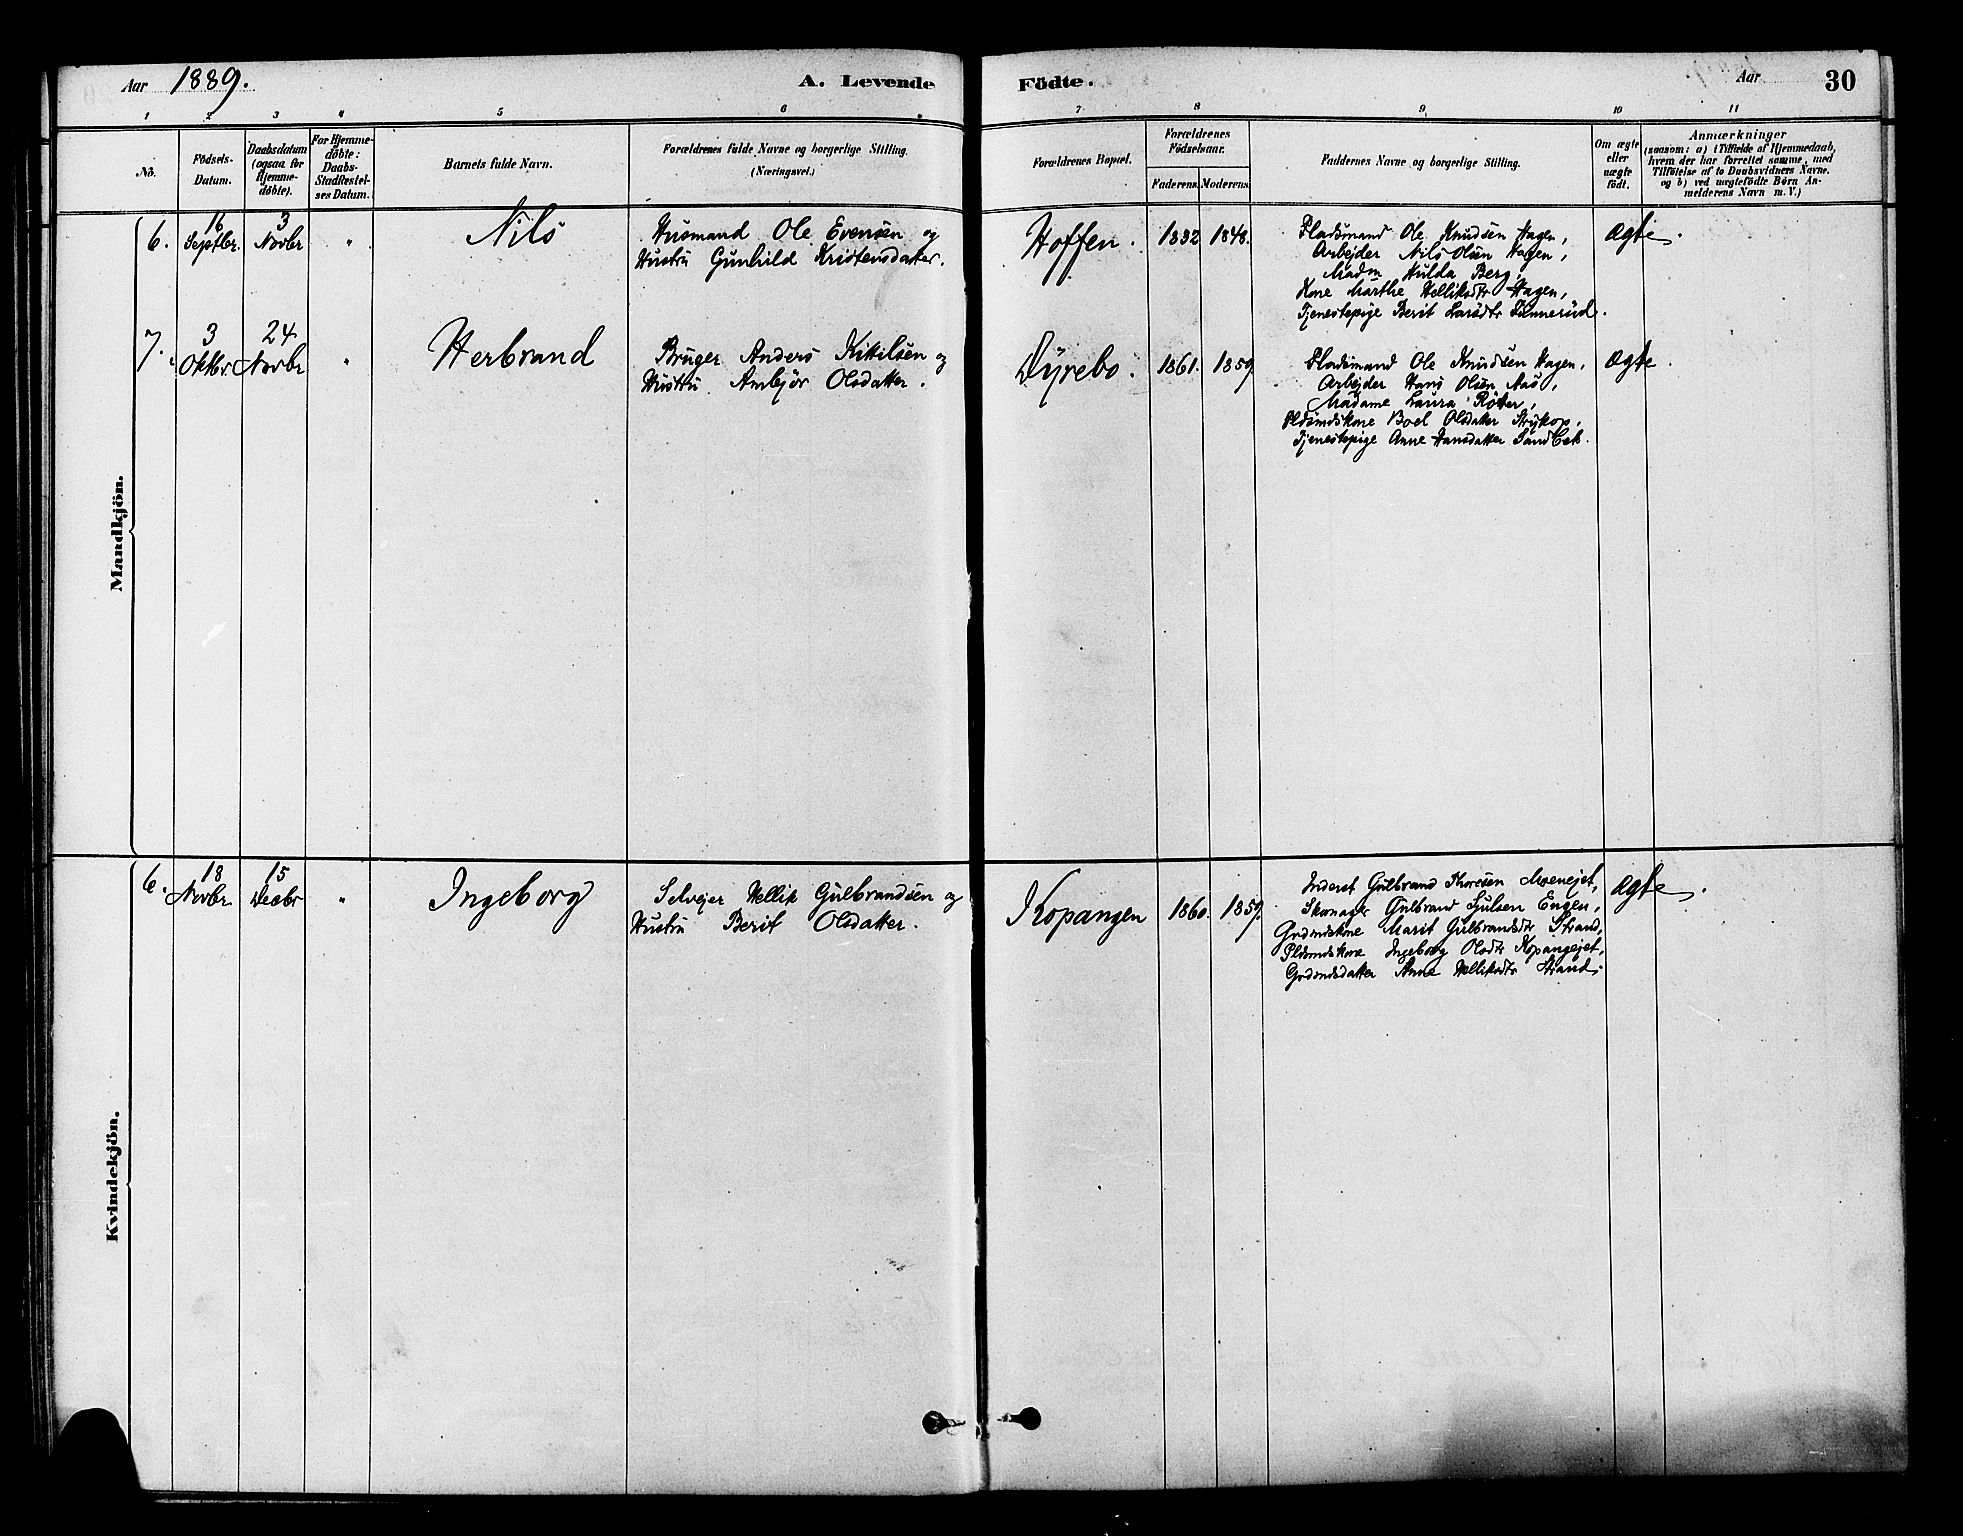 Aar 1889. A. Levende Födte. Aar 30
1 2 3 4 5 6 7 8 9 10 11
No.
Födsels-Datum.
Daabsdatum (ogsaa for Hjemme-döbte).
For Hjemme-döbte: Daabs-Stadfæstel-ses Datum.
Barnets fulde Navn.
Forældrenes fulde Navne og borgerlige Stilling.
(Næringsvei.)
Forældrenes Bopæl.
Forældrenes Födselsaar.
Faderens. Moderens.
Faddernes Navne og borgerlige Stilling.
Om ægte eller uægte födt.
Anmærkninger
(saasom: a) i Tilfælde af Hjemmedaab,
hvem der har forrettet samme, med
Tilföielse af to Daabsvidners Navne.
og b) ved uægtefödte Börn An-
melderens Navn m. V.)
Mandkjön.
6. 16 Septbr. 3 Novbr " Nils
Husmand Ole Evensen og
Hustru Gunhild Kristensdatter.
Hoffen. 1832 1848.
Pladsmand Ole Knudsen Hagen,
Arbejder Nils Olsen Hagen,
Madm Hulda Berg,
Kone Marthe Helliksdtr Hagen,
Tjenestepige Berit Larsdtr
ægte.
7. 3 Oktbr. 24 Novbr " Herbrand
Bruger Anders Kittilsen og
Hustru Ambjör Olsdatter.
Dyrebo. 1861. 1859.
Pladsmand Ole Knudsen Hagen,
Arbejder Hans Olsen Aas,
Madame Laura
Pldsmdskone Boel Olsdatter Strykop.
Tjenestepige Anne Hansdatter Sandbek.
ægte.
Kvindekjön.
6. 18 Novbr. 15 Decbr " Ingeborg
Selvejer Hellik Gulbrandsen og
Hustru Berit Olsdatter.
Kopangen 1860. 1859.
Inderst Gulbrand Thoresen Moenejet,
Skomager Gulbrand Engen,
Grdmdskone Marit Gulbrandsdtr Strand,
Pldsmdskone Ingeborg Olsdtr Kopangejet,
Grdmdsdatter Anne Helliksdtr Strand.
ægte.